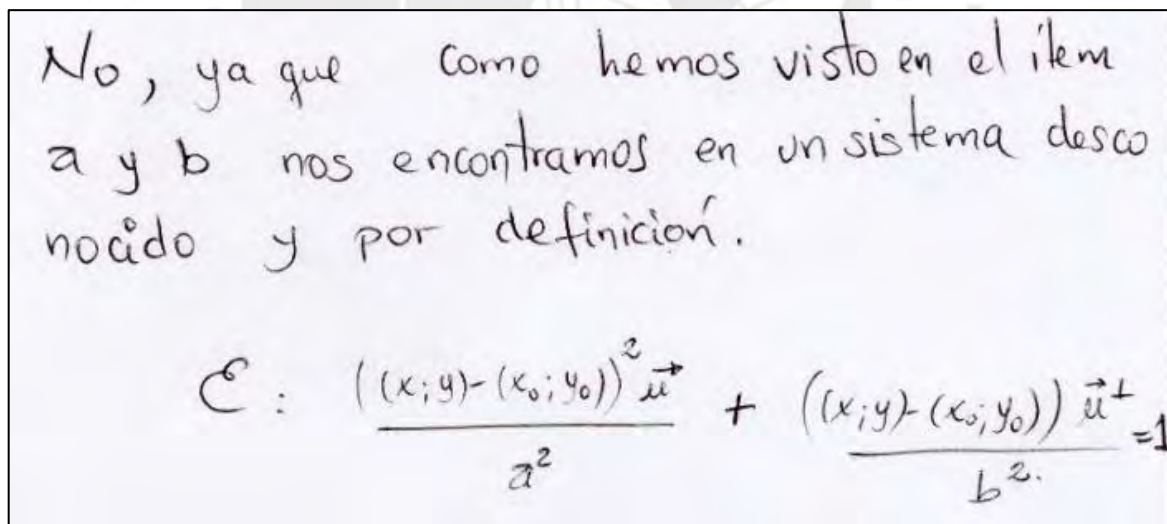 No, ya que como hemos visto en el ítem
a y b nos encontramos en un sistema desco
nocido y por definición.
C : ((x;y)-(x₀;y₀))² u⃗ / a² + ((x;y)-(x₀;y₀)) u⃗⊥ / b². =1